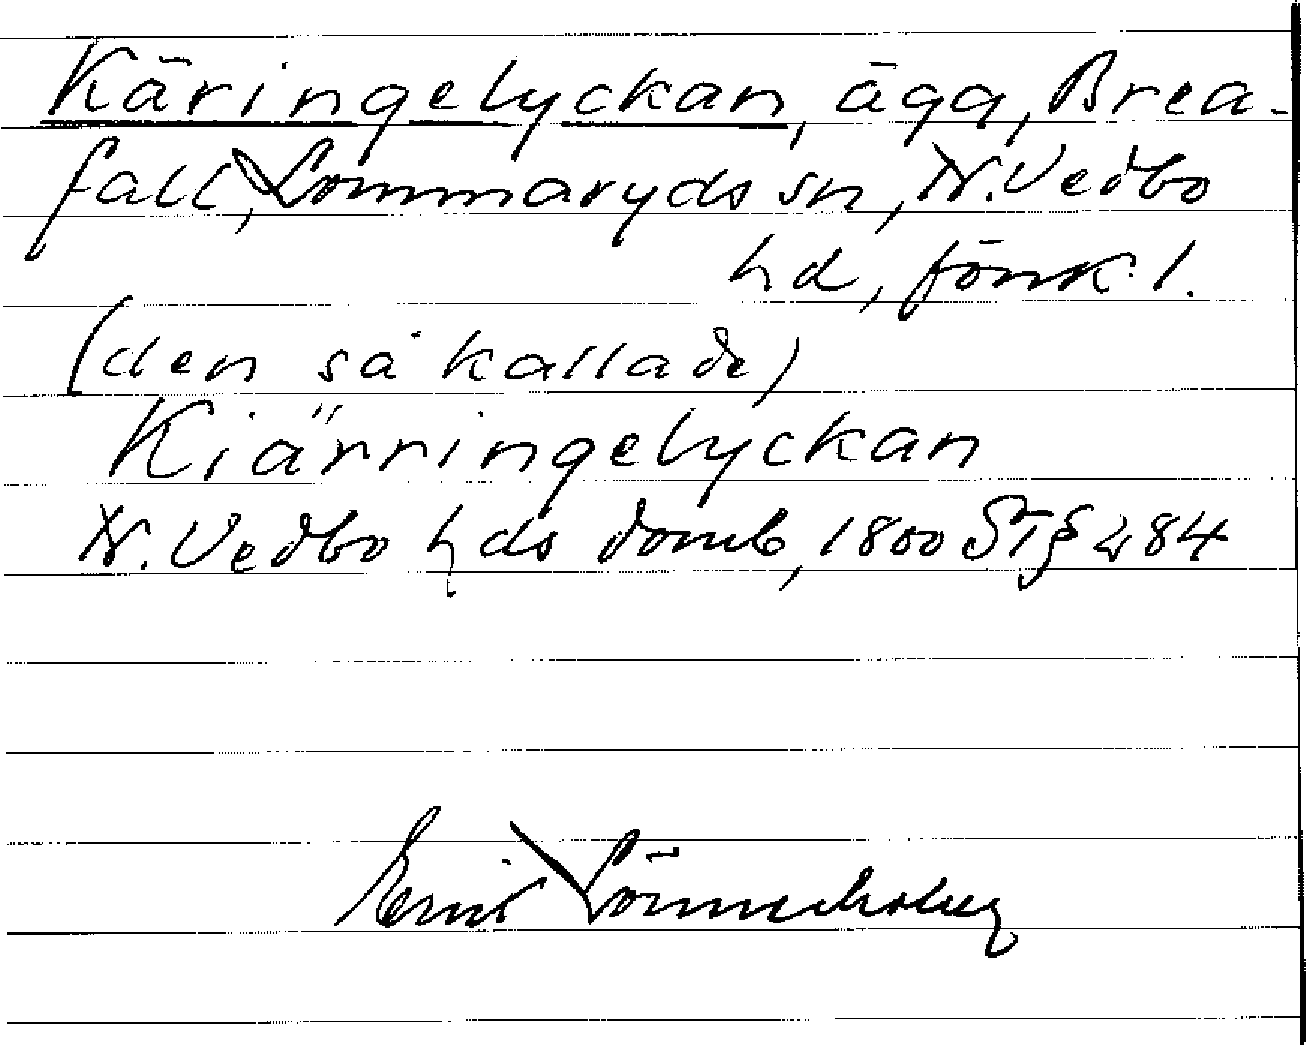 Käringelyckan, äga, Brea-
fall, Lommaryds sn, N. Vedbo
hd, Jönk. l.
(den så kallade)
Kiärringelyckan
N. Vedbo hds domb, 1800 ST § 284